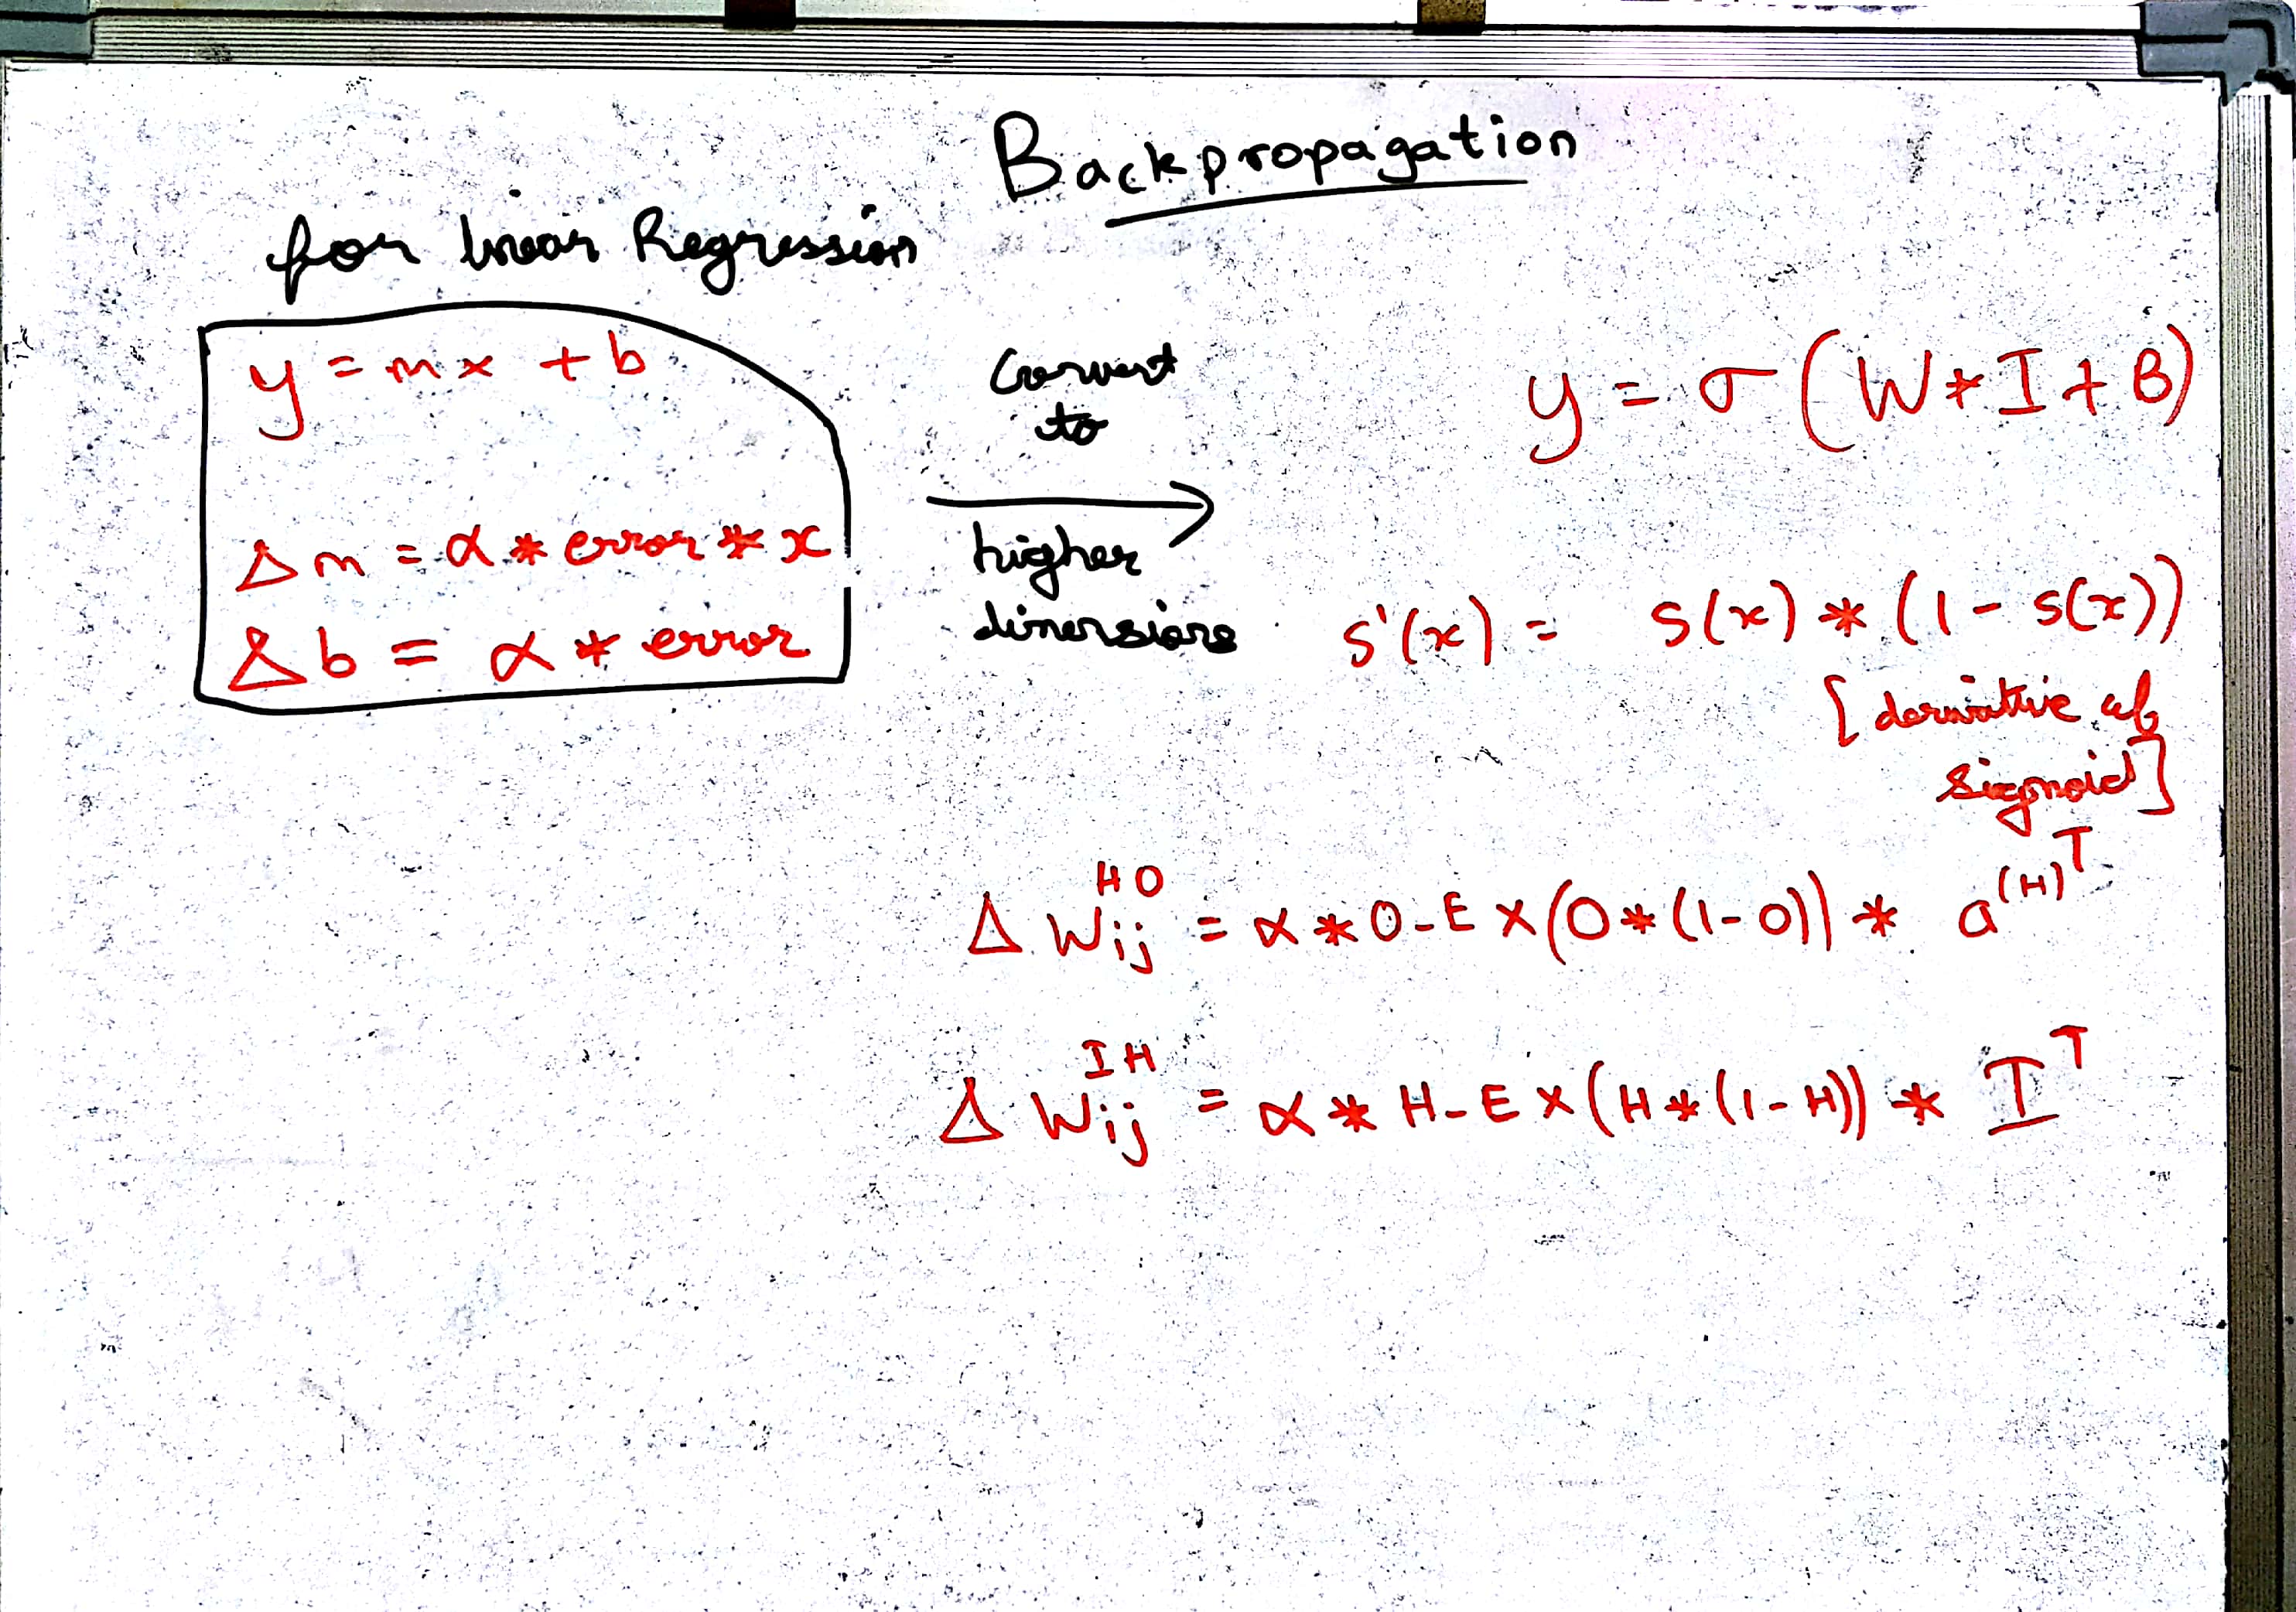 Backpropagation
for linear Regression
y = mx + b
Δm = α * error * x
Δb = α * error
Convert
to
higher
dimensions
y = σ (W * I + B)
s'(x) = s(x) * (1 - s(x))
[derivative of
sigmoid]
ΔW_ij^HO = α * O_E × (O * (1 - O)) * a^(H)^T
ΔW_ij^IH = α * H_E × (H * (1 - H)) * I^T